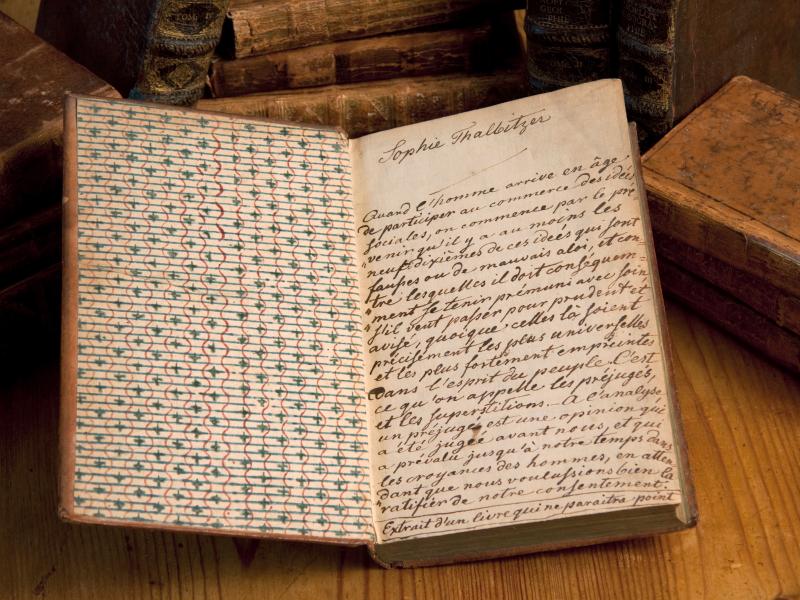 TOM. IV
Sophie Thalbitzer
Quand l'homme arrive en âge
de participer au commerce des idées
sociales, on commence par le pré
"venir qu'il y a au moins les
neuf dixièmes de ces idées qui sont
fausses ou de mauvais aloi, et con
"tre lesquelles il doit conséquem=
"ment se tenir prémuni avec soin
"s'il veut passer pour prudent et
avisé, quoique celles là soient
précisément les plus universelles
et les plus fortement empreintes
dans l'esprit du peuple. C'est
ce qu'on appelle les préjugés,
et les superstitions. A l'analyse
un préjugé est une opinion qui
a été jugée avant nous, et qui
a prévalu jusqu'à notre temps dans
les croyances des hommes, en atten
"dant que nous voulussions bien la
"ratifier de notre consentement.
Extrait d'un livre qui ne paraitra point